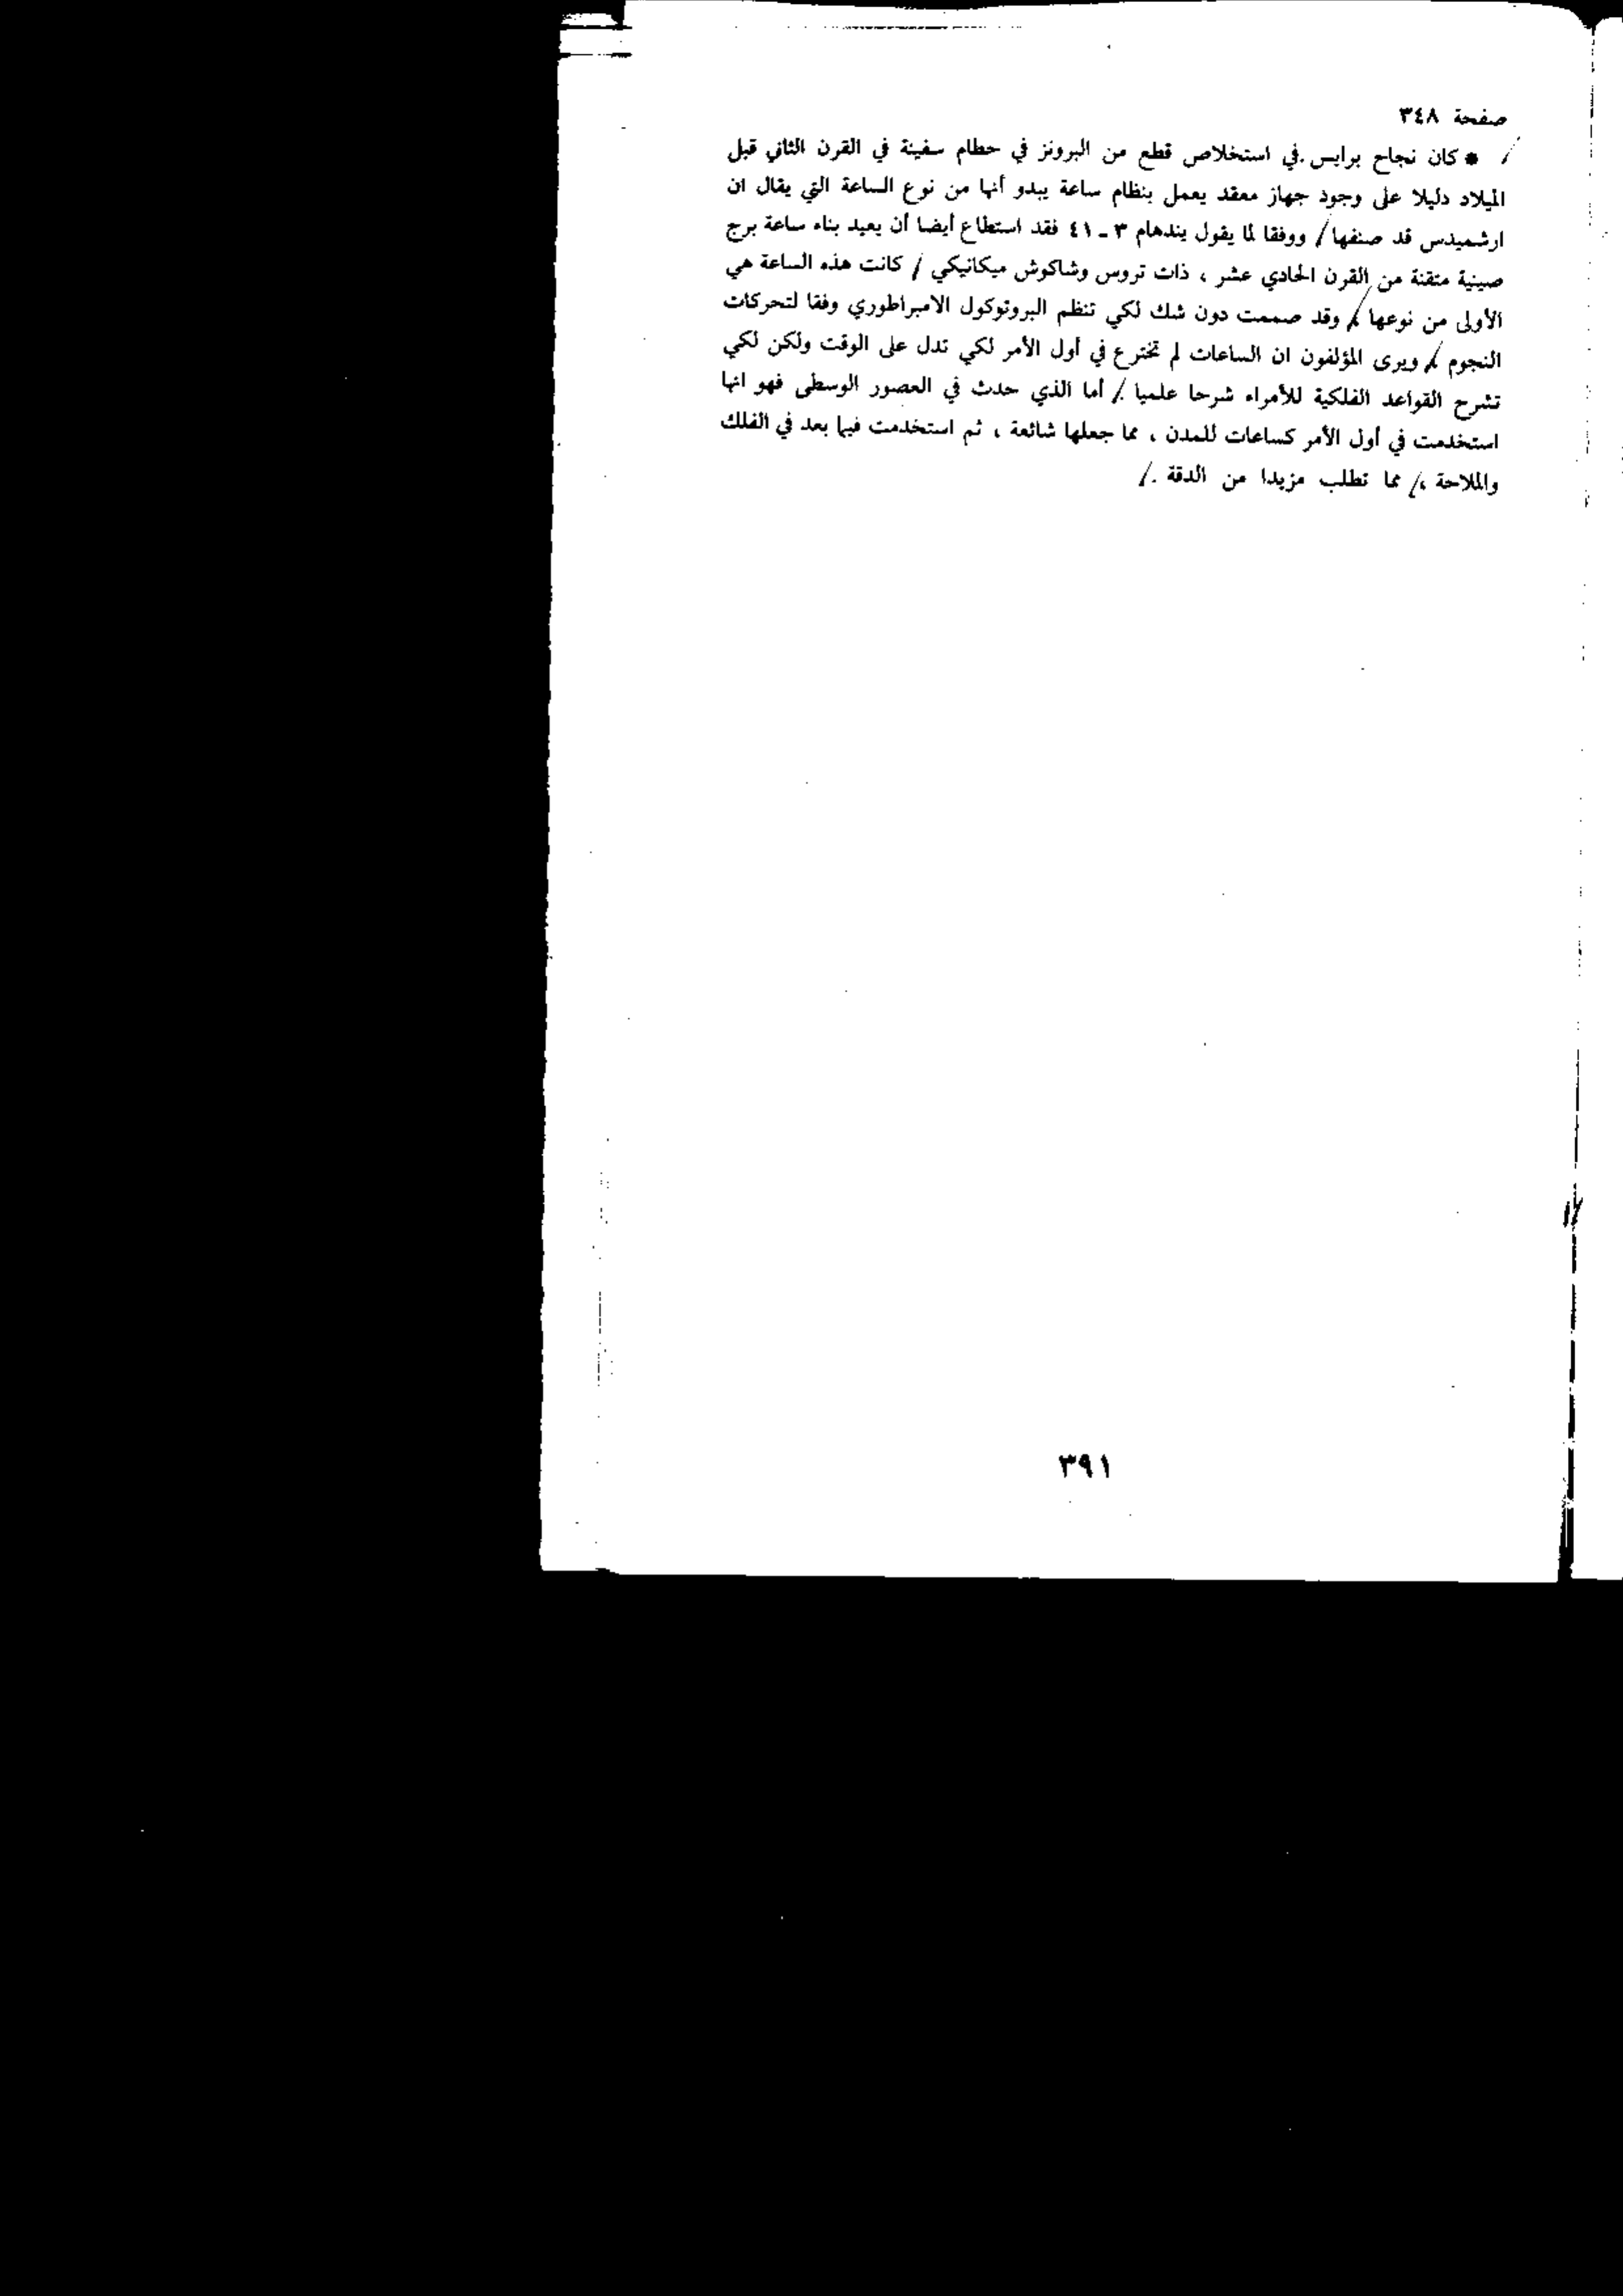 صفحة ٣٤٨
* كان نجاح برايس في استخلاص قطع من البرونز في حطام سفينة في القرن الثاني قبل
الميلاد دليلا على وجود جهاز معقد يعمل بنظام ساعة يبدو أنها من نوع الساعة التي يقال ان
ارشميدس قد صنفها / ووفقا لما يقول يندهام ٣ - ٤١ فقد استطاع أيضا أن يعيد بناء ساعة برج
صينية متقنة من القرن الحادي عشر ، ذات تروس وشاكوش ميكانيكي / كانت هذه الساعة هي
الأولى من نوعها / وقد صممت دون شك لكي تنظم البروتوكول الامبراطوري وفقا لتحركات
النجوم / ويرى المؤلفون ان الساعات لم تخترع في أول الأمر لكي تدل على الوقت ولكن لكي
تشرح القواعد الفلكية للأمراء شرحا علميا ./ أما الذي حدث في العصور الوسطى فهو انها
استخدمت في أول الأمر كساعات للمدن ، مما جعلها شائعة ، ثم استخدمت فيما بعد في الفلك
والملاحة ،/ مما تطلب مزيدا من الدقة ./
٣٩١